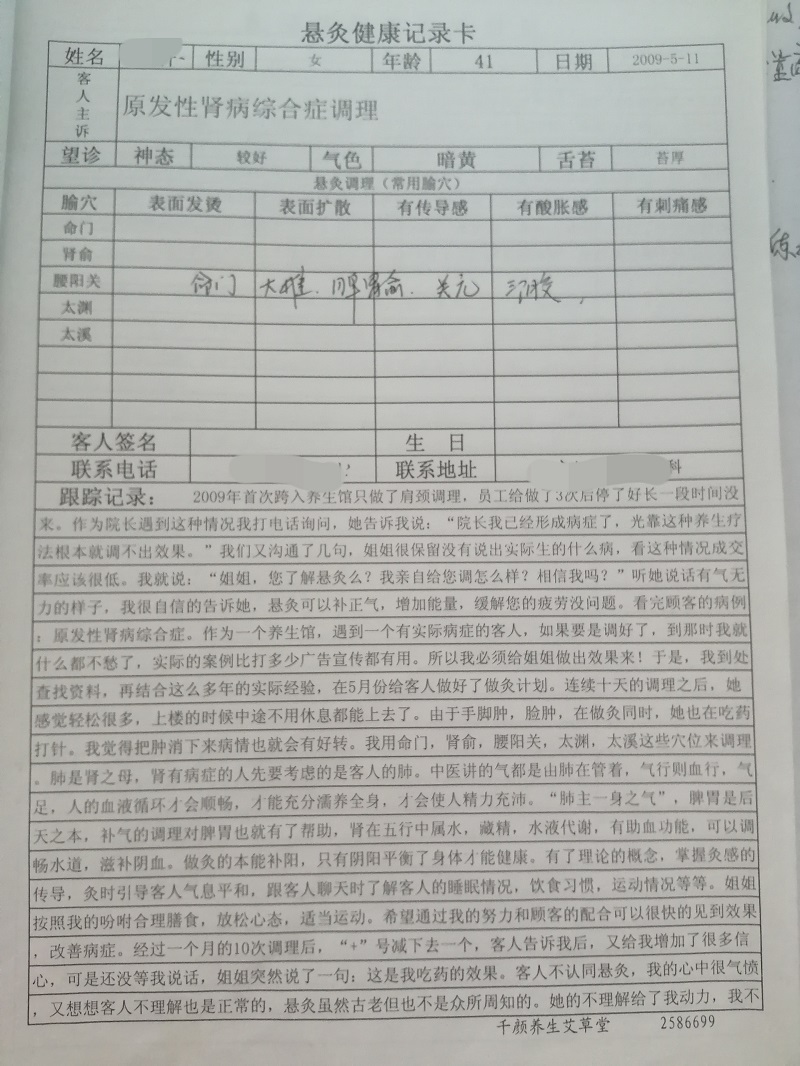 悬灸健康记录卡
姓名 性别 女 年龄 41 日期 2009-5-11
客人主诉 原发性肾病综合症调理
望诊 神态 较好 气色 暗黄 舌苔 苔厚
悬灸调理（常用腧穴）
腧穴 表面发烫 表面扩散 有传导感 有酸胀感 有刺痛感
命门
肾俞
腰阳关 命门 大椎. 脾肾俞. 关元
太渊
太溪
客人签名 生 日
联系电话 联系地址 科
跟踪记录： 2009年首次跨入养生馆只做了肩颈调理，员工给做了3次后停了好长一段时间没
来。作为院长遇到这种情况我打电话询问，她告诉我说：“院长我已经形成病症了，光靠这种养生疗
法根本就调不出效果。”我们又沟通了几句，姐姐很保留没有说出实际生的什么病，看这种情况成交
率应该很低。我就说：“姐姐，您了解悬灸么？我亲自给您调怎么样？相信我吗？”听她说话有气无
力的样子，我很自信的告诉她，悬灸可以补正气，增加能量，缓解您的疲劳没问题。看完顾客的病例
：原发性肾病综合症。作为一个养生馆，遇到一个有实际病症的客人，如果要是调好了，到那时我就
什么都不愁了，实际的案例比打多少广告宣传都有用。所以我必须给姐姐做出效果来！于是，我到处
查找资料，再结合这么多年的实际经验，在5月份给客人做好了做灸计划。连续十天的调理之后，她
感觉轻松很多，上楼的时候中途不用休息都能上去了。由于手脚肿，脸肿，在做灸同时，她也在吃药
打针。我觉得把肿消下来病情也就会有好转。我用命门，肾俞，腰阳关，太渊，太溪这些穴位来调理
。肺是肾之母，肾有病症的人先要考虑的是客人的肺。中医讲的气都是由肺在管着，气行则血行，气
足，人的血液循环才会顺畅，才能充分濡养全身，才会使人精力充沛。“肺主一身之气”，脾胃是后
天之本，补气的调理对脾胃也就有了帮助，肾在五行中属水，藏精，水液代谢，有助血功能，可以调
畅水道，滋补阴血。做灸的本能补阳，只有阴阳平衡了身体才能健康。有了理论的概念，掌握灸感的
传导，灸时引导客人气息平和，跟客人聊天时了解客人的睡眠情况，饮食习惯，运动情况等等。姐姐
按照我的吩咐合理膳食，放松心态，适当运动。希望通过我的努力和顾客的配合可以很快的见到效果
，改善病症。经过一个月的10次调理后，“+”号减下去一个，客人告诉我后，又给我增加了很多信
心，可是还没等我说话，姐姐突然说了一句：这是我吃药的效果。客人不认同悬灸，我的心中很气愤
，又想想客人不理解也是正常的，悬灸虽然古老但也不是众所周知的。她的不理解给了我动力，我不
千颜养生艾草堂 2586699